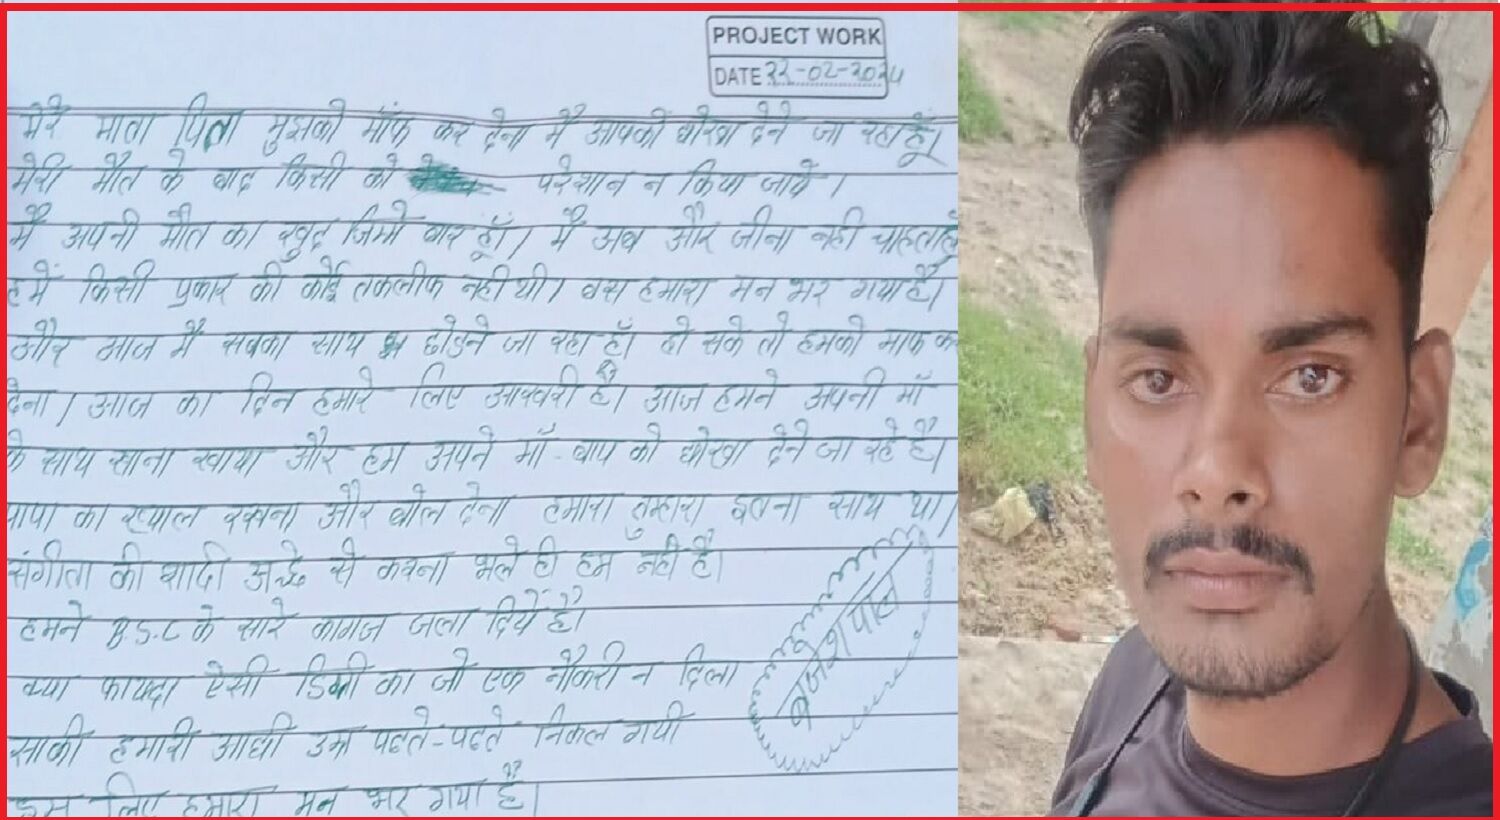 PROJECT WORK
DATE 22-02-2024
मेरे माता पिता मुझको माँफ कर देना मैं आपको धोखा देने जा रहा हूँ।
मेरी मौत के बाद किसी को परेशान न किया जाये।
मैं अपनी मौत का खुद जिमो वार हूँ। मैं अब और जीना नही चाहता हूँ
हमें किसी प्रकार की कोई तकलीफ नही थी। बस हमारा मन भर गया है।
और आज मैं सबका साथ छोडने जा रहा हूँ। हो सके तो हमको माफ कर
देना। आज का दिन हमारे लिए आखरी है। आज हमने अपनी माँ
के साथ खाना खाया और हम अपने माँ-बाप को धोखा देने जा रहे है।
पापा का ख्याल रखना और बोल देना हमारा तुम्हारा इतना साथ था।
संगीता की शादी अच्छे से करना भले ही हम नही है।
हमने B.S.C के सारे कागज जला दिये है।
क्या फायदा ऐसी डिग्री का जो एक नौकरी न दिला
साकी हमारी आधी उम्र पढते-पढते निकल गयी
इस लिए हमारा मन भर गया है।
बृजेश पाल